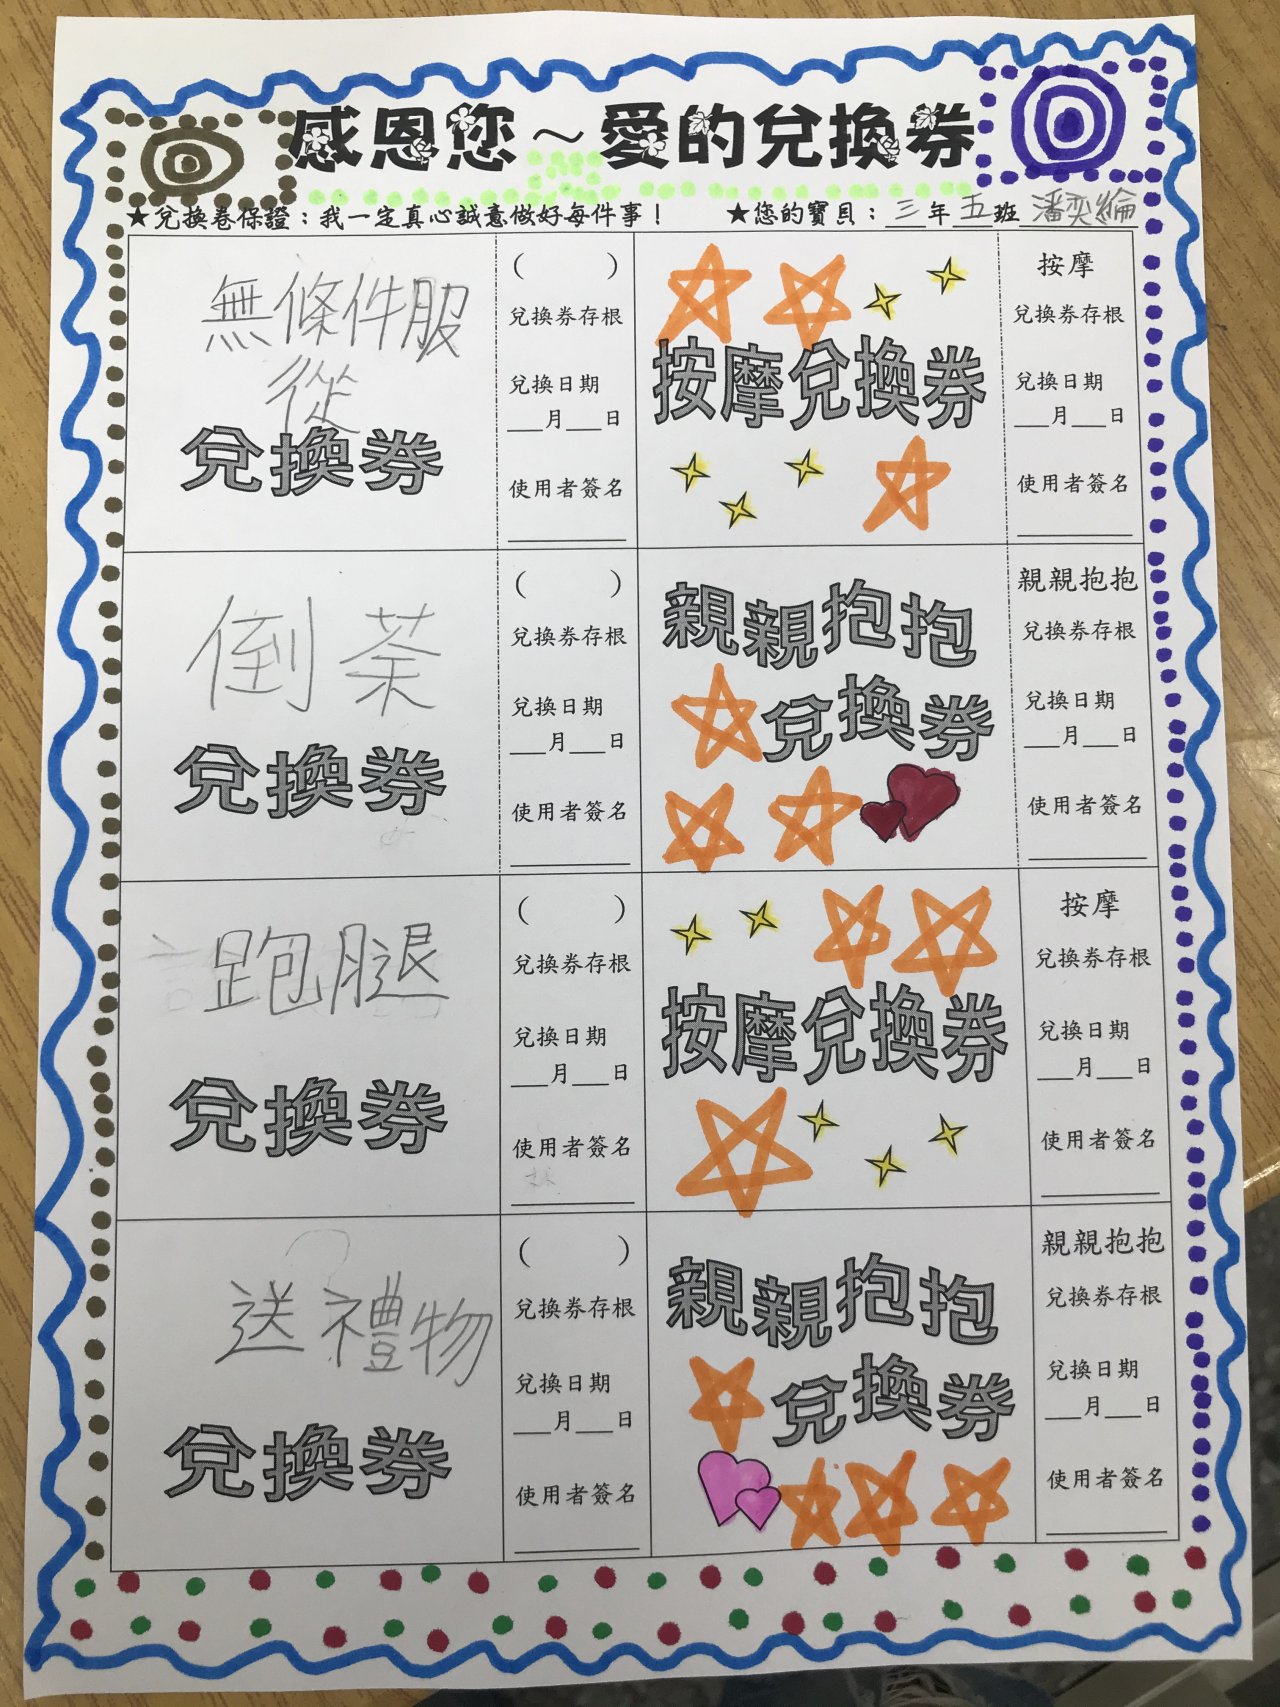 感恩您～愛的兌換券
★兌換卷保證：我一定真心誠意做好每件事！ ★您的寶貝：三年五班潘奕綸
無條件服
從
兌換券
（ ）
兌換券存根
兌換日期
___月___日
使用者簽名
按摩兌換券
按摩
兌換券存根
兌換日期
___月___日
使用者簽名
倒茶
兌換券
（ ）
兌換券存根
兌換日期
___月___日
使用者簽名
親親抱抱
兌換券
親親抱抱
兌換券存根
兌換日期
___月___日
使用者簽名
跑腿
兌換券
（ ）
兌換券存根
兌換日期
___月___日
使用者簽名
按摩兌換券
按摩
兌換券存根
兌換日期
___月___日
使用者簽名
送禮物
兌換券
（ ）
兌換券存根
兌換日期
___月___日
使用者簽名
親親抱抱
兌換券
親親抱抱
兌換券存根
兌換日期
___月___日
使用者簽名